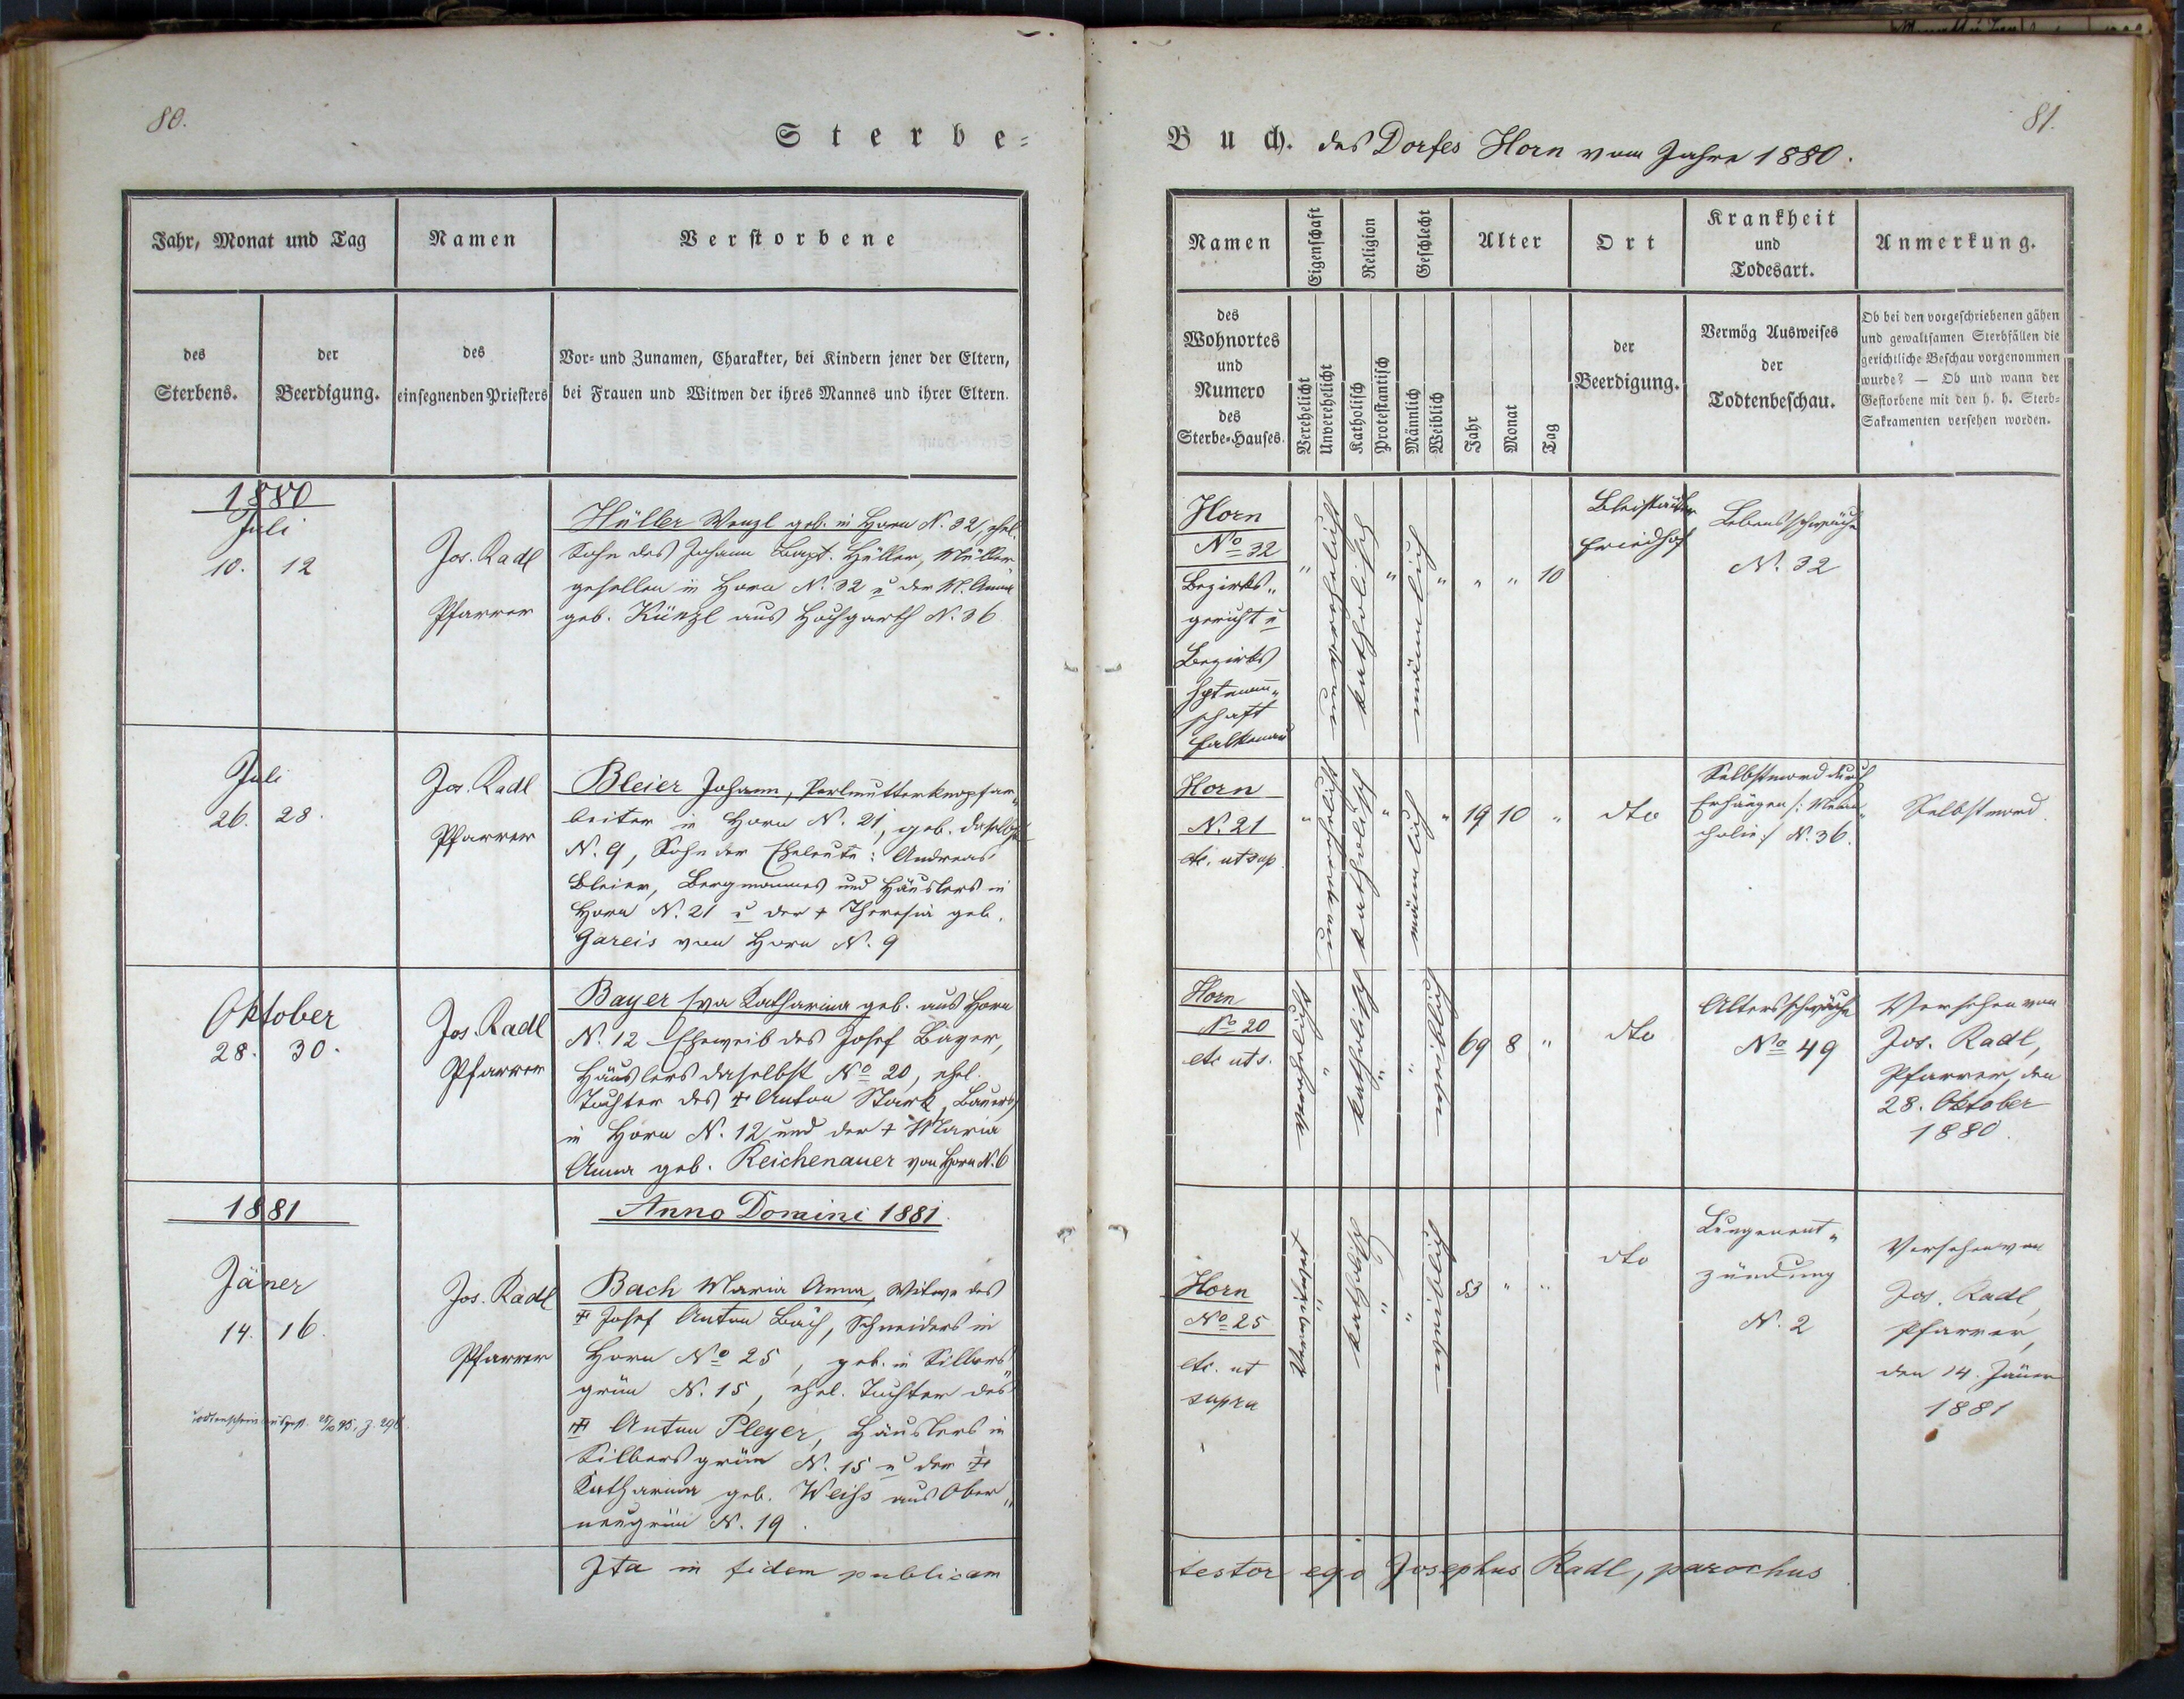 80.
Sterbe-
Jahr, Monat und Tag
Namen
Verstorbene
des
Sterbens.
der
Beerdigung.
des
einsegnenden Priesters
Vor- und Zunamen, Charakter, bei Kindern jener der Eltern,
bei Frauen und Witwen der ihres Mannes und ihrer Eltern.
1880
Juli
10. 12
Jos. Radl
Pfarrer
Hüller Wenzl geb. in Horn N. 32, ehel.
Sohn des Johann Bapt. Hüller, Müller-
gesellen in Horn N. 32 u der M. Anna
geb. Künzl aus Hochgarth N. 36
Juli
26. 28.
Jos. Radl
Pfarrer
Bleier Johann, Perlmutterknopfar„
beiter in Horn N. 21, geb. daselbst
N. 9, Sohn der Eheleute: Andreas
Bleier, Bergmannes und Häuslers in
Horn N. 21 u der + Theresia geb.
Gareis von Horn N. 9
Oktober
28. 30.
Jos. Radl
Pfarrer
Bayer Eva Katharina geb. aus Horn
N. 12 Eheweib des Josef Bayer,
Häuslers daselbst No 20, ehel.
Tochter des + Anton Stark, Bauers
in Horn N. 12 und der + Maria
Anna geb. Reichenauer von Horn N. 6
1881
Anno Domini 1881.
Jäner
14. 16.
Jos. Radl
Pfarrer
Bach Maria Anna, Witwe des
+ Josef Anton Bach, Schneiders in
Horn No 25, geb. in Silbers„
grün N. 15, ehel. Tochter des
+ Anton Pleyer, Häuslers in
Silbersgrün N. 15 u der +
Katharina geb. Weiss aus Ober„
neugrün N. 19.
Ita in fidem publicam
81.
Buch. des Dorfes Horn vom Jahre 1880.
Namen
Eigenschaft
Religion
Geschlecht
Alter
Ort
Krankheit
und
Todesart.
Anmerkung.
des
Wohnortes
und
Numero
des
Sterbe-Hauses.
Verehelicht
Unverehelicht
Katholisch
Protestantisch
Männlich
Weiblich
Jahr
Monat
Tag
der
Beerdigung.
Vermög Ausweises
der
Todtenbeschau.
Ob bei den vorgeschriebenen gähen
und gewaltsamen Sterbfällen die
gerichtliche Beschau vorgenommen
wurde? — Ob und wann der
Gestorbene mit den h. h. Sterb-
Sakramenten versehen worden.
Horn
No 32
Bezirks„
gericht u
Bezirks
hptmann„
schaft
Falkenau
" unverehelicht katholisch " männlich " " " 10
Bleistädter
Friedhof
Lebensschwäche
N. 32
Horn
N. 21
etc. ut sup.
" unverehelicht katholisch " männlich " 19 10 "
dto
Selbstmord durch
Erhängen /: Melan„
cholie :/ N. 36.
Selbstmord.
Horn
No 20
etc ut s.
verehelicht " katholisch " " weiblich 69 8 "
dto
Altersschwäche
No 49
Versehen von
Jos. Radl,
Pfarrer, den
28. Oktober
1880.
Horn
No 25
etc. ut
supra
Verwitwet " katholisch " " weiblich 53 " "
dto
Lungenent„
zündung
N. 2
Versehen von
Jos. Radl,
Pfarrer,
den 14. Jäner
1881
testor ego Josephus Radl, parochus